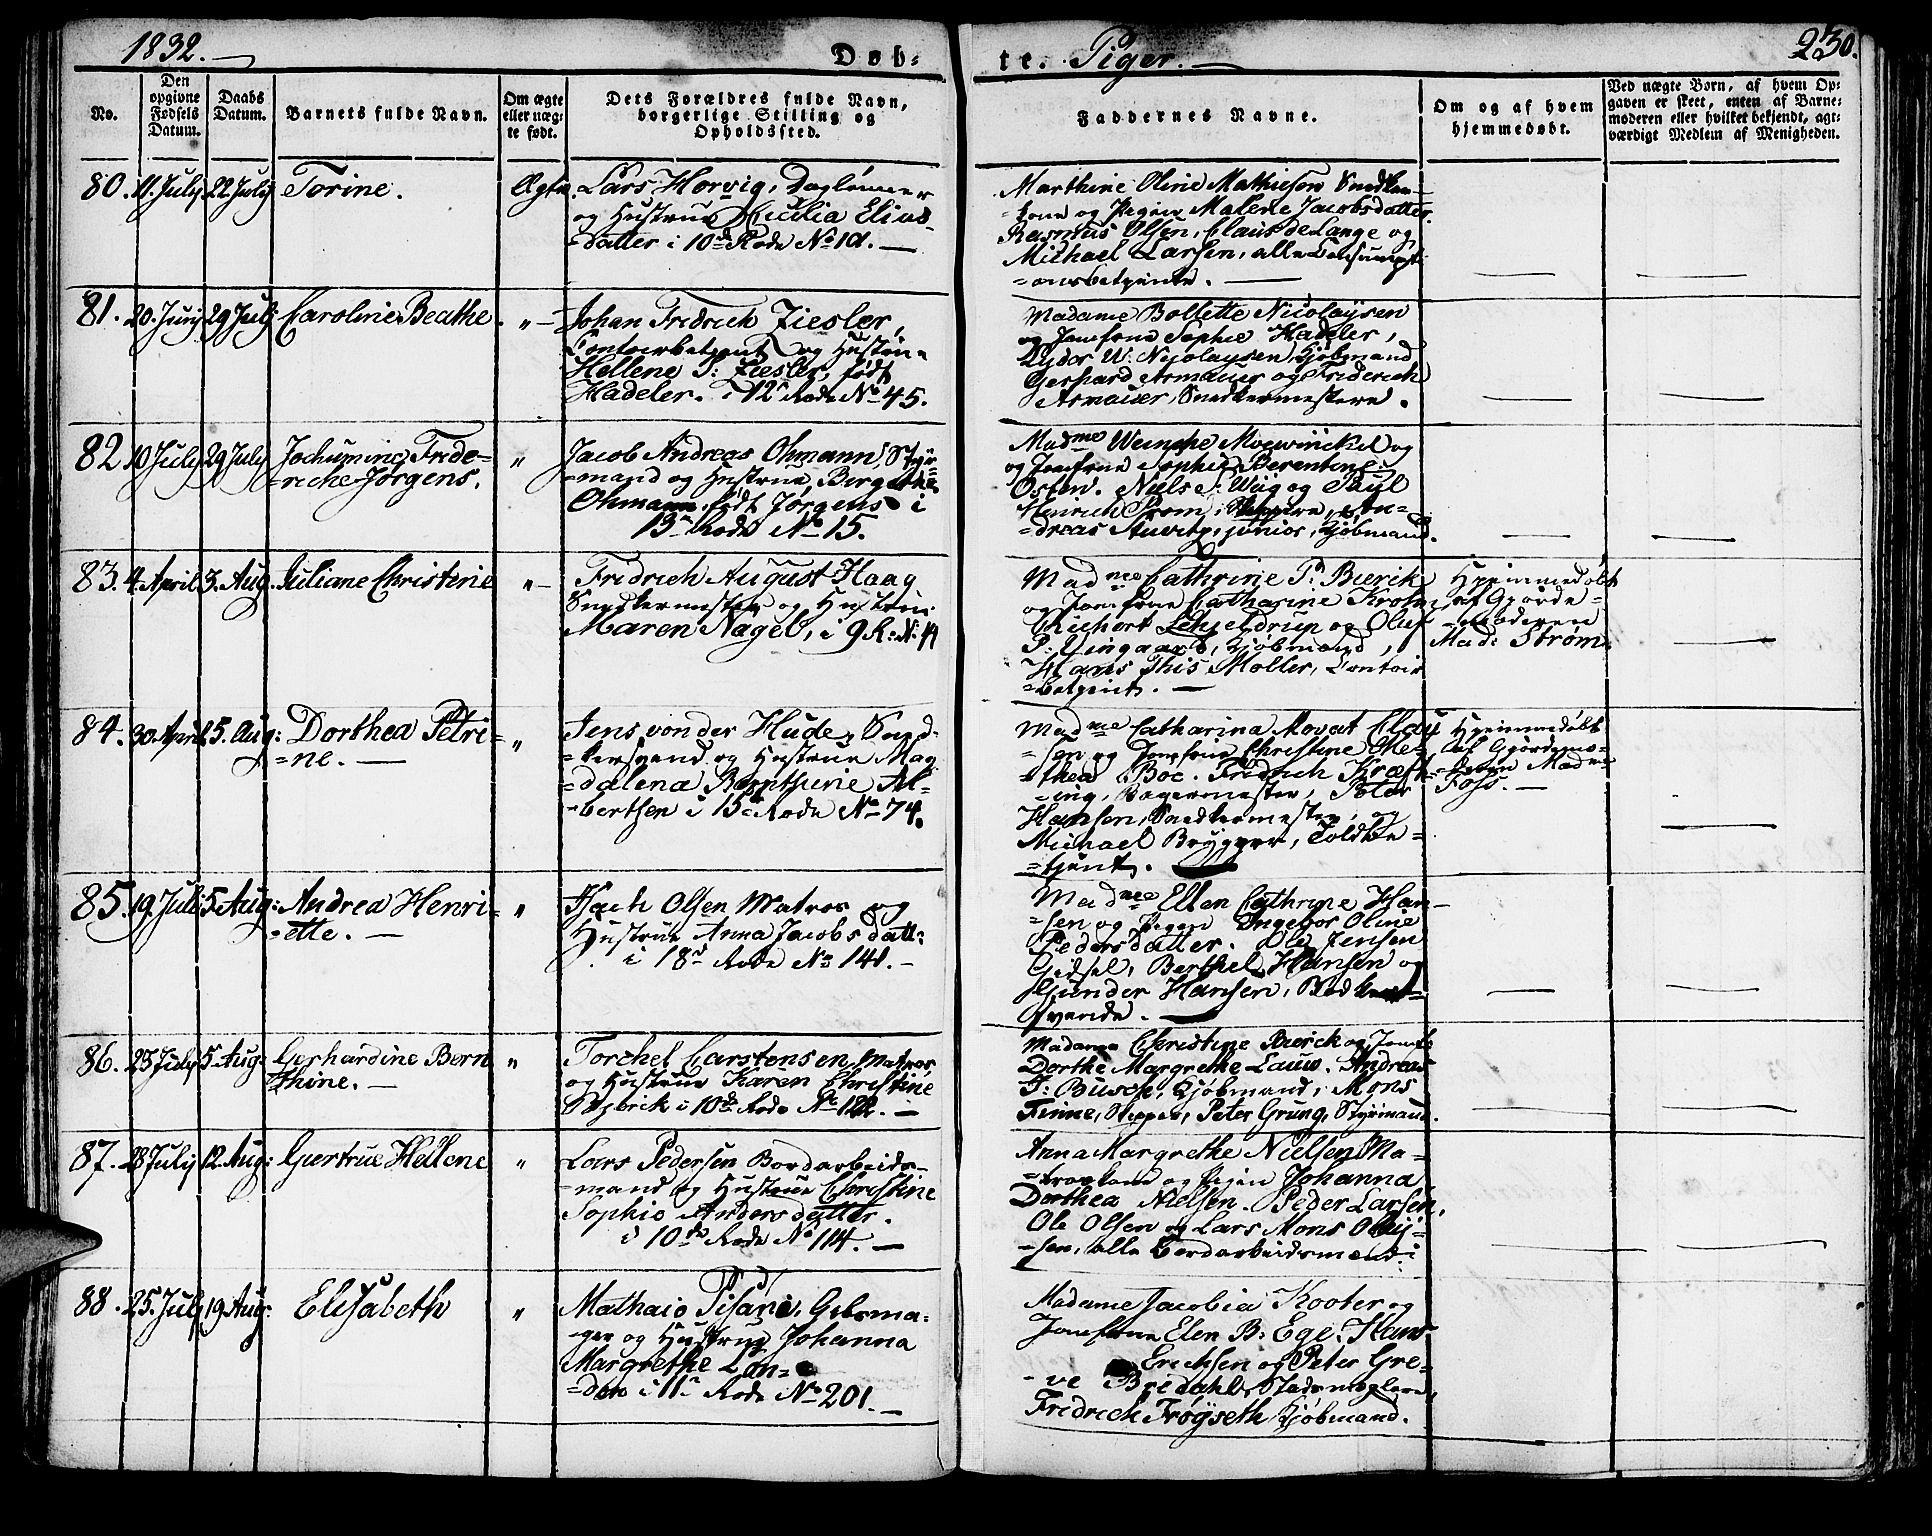 1832.
Døb-
te. Piger.
230.
No.
Den
opgivne
Fødsels
Datum.
Daabs
Datum.
Barnets fulde Navn.
Om ægte
eller uæg-
te født.
Dets Forældres fulde Navn,
borgerlige Stilling og
Opholdssted.
Faddernes Navne.
Om og af hvem
hjemmedøbt.
Ved uægte Børn, af hvem Op-
gaven er skeet, enten af Barne-
moderen eller hvilket bekjendt, agt-
værdigt Medlem af Menigheden.
80. 11. July 22 July Torine. Ægte.
Lars Horvig, Dagleiner
og Hustrue Cicilia Elias-
datter i 10de Rode No 10.
Marthine Oline Mathiesen
-kone og Pigen Malene Jacobsdatter
Rasmus Olsen, Claus de Lange og
Michael Larsen, alle Consumpti-
-onsbetjente.
81. 20. Juny 29 July Caroline Beathe. "
Johan Fridrich Ziesler,
Contoirbetjent og Hustrue
Hellene S: Ziesler, født
Hadeler. i 12r Rode No 45.
Madame Bollette Nicolaysen
og Jomfrue Sophie Hadeler,
Lyder W. Nicolaysen, Kjøbmand,
Gerhard Armauer og Friderich
Armauer, Snedkermestere.
82 10 July 29 July Jochumine Fride-
-riche Jørgens. "
Jacob Andreas Ohmann, Styr-
-mand og Hustrue Bergethe
Ohmann født Jørgens i
13r Rode No 15.
Madme Wenche Mowinckel og
og Jomfrue Sophie Berentine
Osten. Niels S. Wiig og Paul
Henrich Prom, Skippere, An-
-dreas junior, Kjøbmand.
83. 4. April 3. Aug. Juliane Christine "
Fridrich August Haag
Snedkermester og Hustrue
Maren Nagel, i 9 R: N: 11
Madme Cathrine P. Bierik
og Jomfrue Catharine Krohn,
Richert Lehseldrup og Oluf
P. Vingaard, Kjøbmænd,
Hans This Møller, Contoir
-betjent.
Hjemmedøbt
af Gjorde-
-moderen
Mad: Strøm.
84. 30 April 5. Aug: Dorthea Petri-
-ne. "
Jens von der Hude, Sned-
-kersvend og Hustrue Mag
-dalena Bernthine Al-
-bertsen i 15de Rode No 74.
Madme Catharina Movat Clau
-sen og Jomfrue Christine
-thea Boc. Fridrich Kræft-
-ing, Bagermester, Peter
Hansen, Snedkermester, og
Michael Brygger, Toldbe-
-tjent.
Hjemmedøbt
af Gjordemo-
-deren Madme
Foss.
85. 19. July 5 Aug: Andrea Henri-
-ette. "
Isach Olsen Matros og
Hustrue Anna Jacobsdatt:
i 18d Rode No 141.
Madme Ellen Cathrine Han-
-sen og Pigen Ingebor Oline
Pedersdatter. Ole Jensen
Gidsel, Berthel Hansen og
Gunder Hansen, Bødker-
svende.
86. 23 July 5 Aug: Gerhardine Bern
thine. "
Torchel Carstensen, Matros
og Hustrue Karen Christine
i 10de Rode No 122.
Madame Christine Bierck og Jomfr.
Dorthe Margrethe Lauw. Andreas
J. Busch, Kjøbmand, Mons
Finne, Skipper, Peter Grung, Styrmand.
87. 28 July 12. Aug: Giertrue Hellene "
Lars Pedersen Bordarbeids-
-mand og Hustrue Christine
Sophie Andersdatter.
i 10de Rode No 114.
Anna Margrethe Nielsen Ma-
-troskone og Pigen Johanna
Dorthea Nielsen. Peder Larsen,
Ole Olsen og Lars Mons Ol
-sen, alle Bordarbeidsmænd.
88. 25. July 19 Aug: Elisabeth "
Mathaio Pisani, Gibsma-
-ger og Hustrue Johanna
Margrethe Lon-
-don i 11r Rode No 201.
Madame Jacobia Kooter og
Jomfrue Elen B. Ege. Hans
Erichsen og Peter Gre-
-ve Bredahl, Stadsmæglere,
Fridrich Frøyseth Kjøbmand.